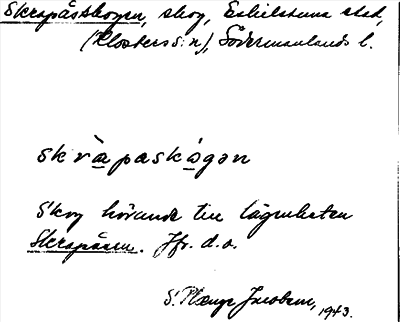 Skrapåsskogen, skog, Eskilstuna stad,
(Klosters s:n), Södermanlands l.
skràpaskógən
Skog hörande till lägenheten
Skrapåsen. Jfr. d.o.
S. Plenge Jacobsen, 1943.